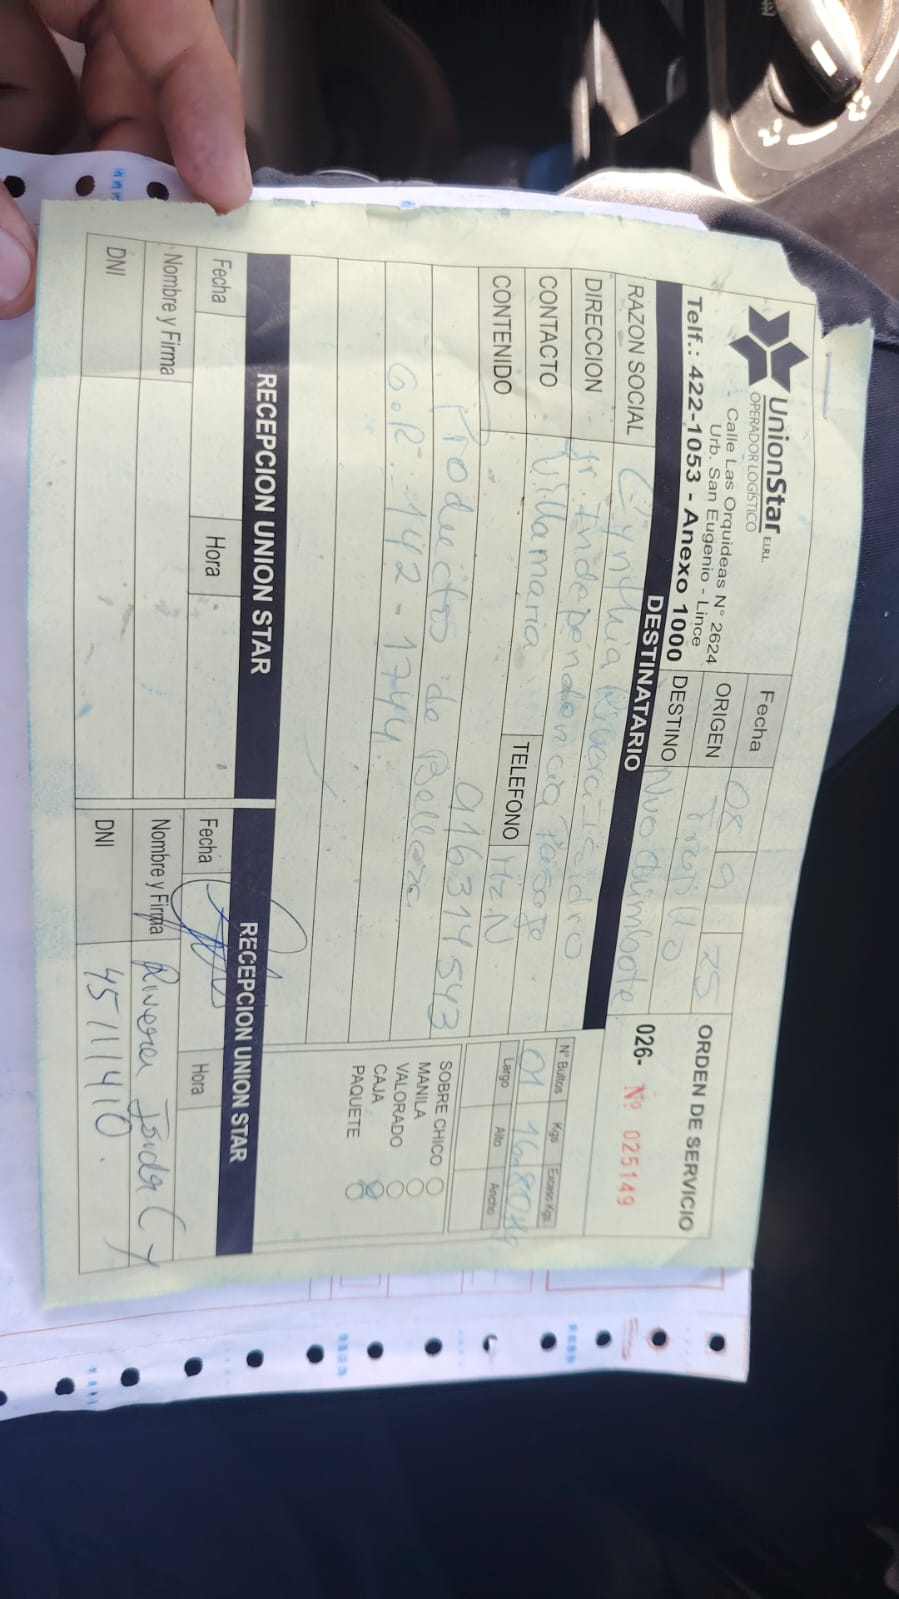 UnionStar E.I.R.L.
OPERADOR LOGÍSTICO
Calle Las Orquideas N° 2624
Urb. San Eugenio - Lince
Telf.: 422-1053 - Anexo 1000
Fecha 08 9 25
ORIGEN Trujillo
DESTINO Nvo Chimbote
ORDEN DE SERVICIO
026- Nº 025149
DESTINATARIO
RAZON SOCIAL Cynthia Ribera
DIRECCION Jr. Independencia Pasaje
CONTACTO Villamaria TELEFONO Mz N
CONTENIDO 916314543
Productos de Belleza
G.R. 142-1744.
N° Bultos Kgs Exceso Kgs.
01 16.80
Largo Alto Ancho
SOBRE CHICO
MANILA
VALORADO
CAJA
PAQUETE
RECEPCION UNION STAR
Fecha Hora
Nombre y Firma
DNI
RECEPCION UNION STAR
Fecha Hora
Nombre y Firma Rivera
DNI 45111410.